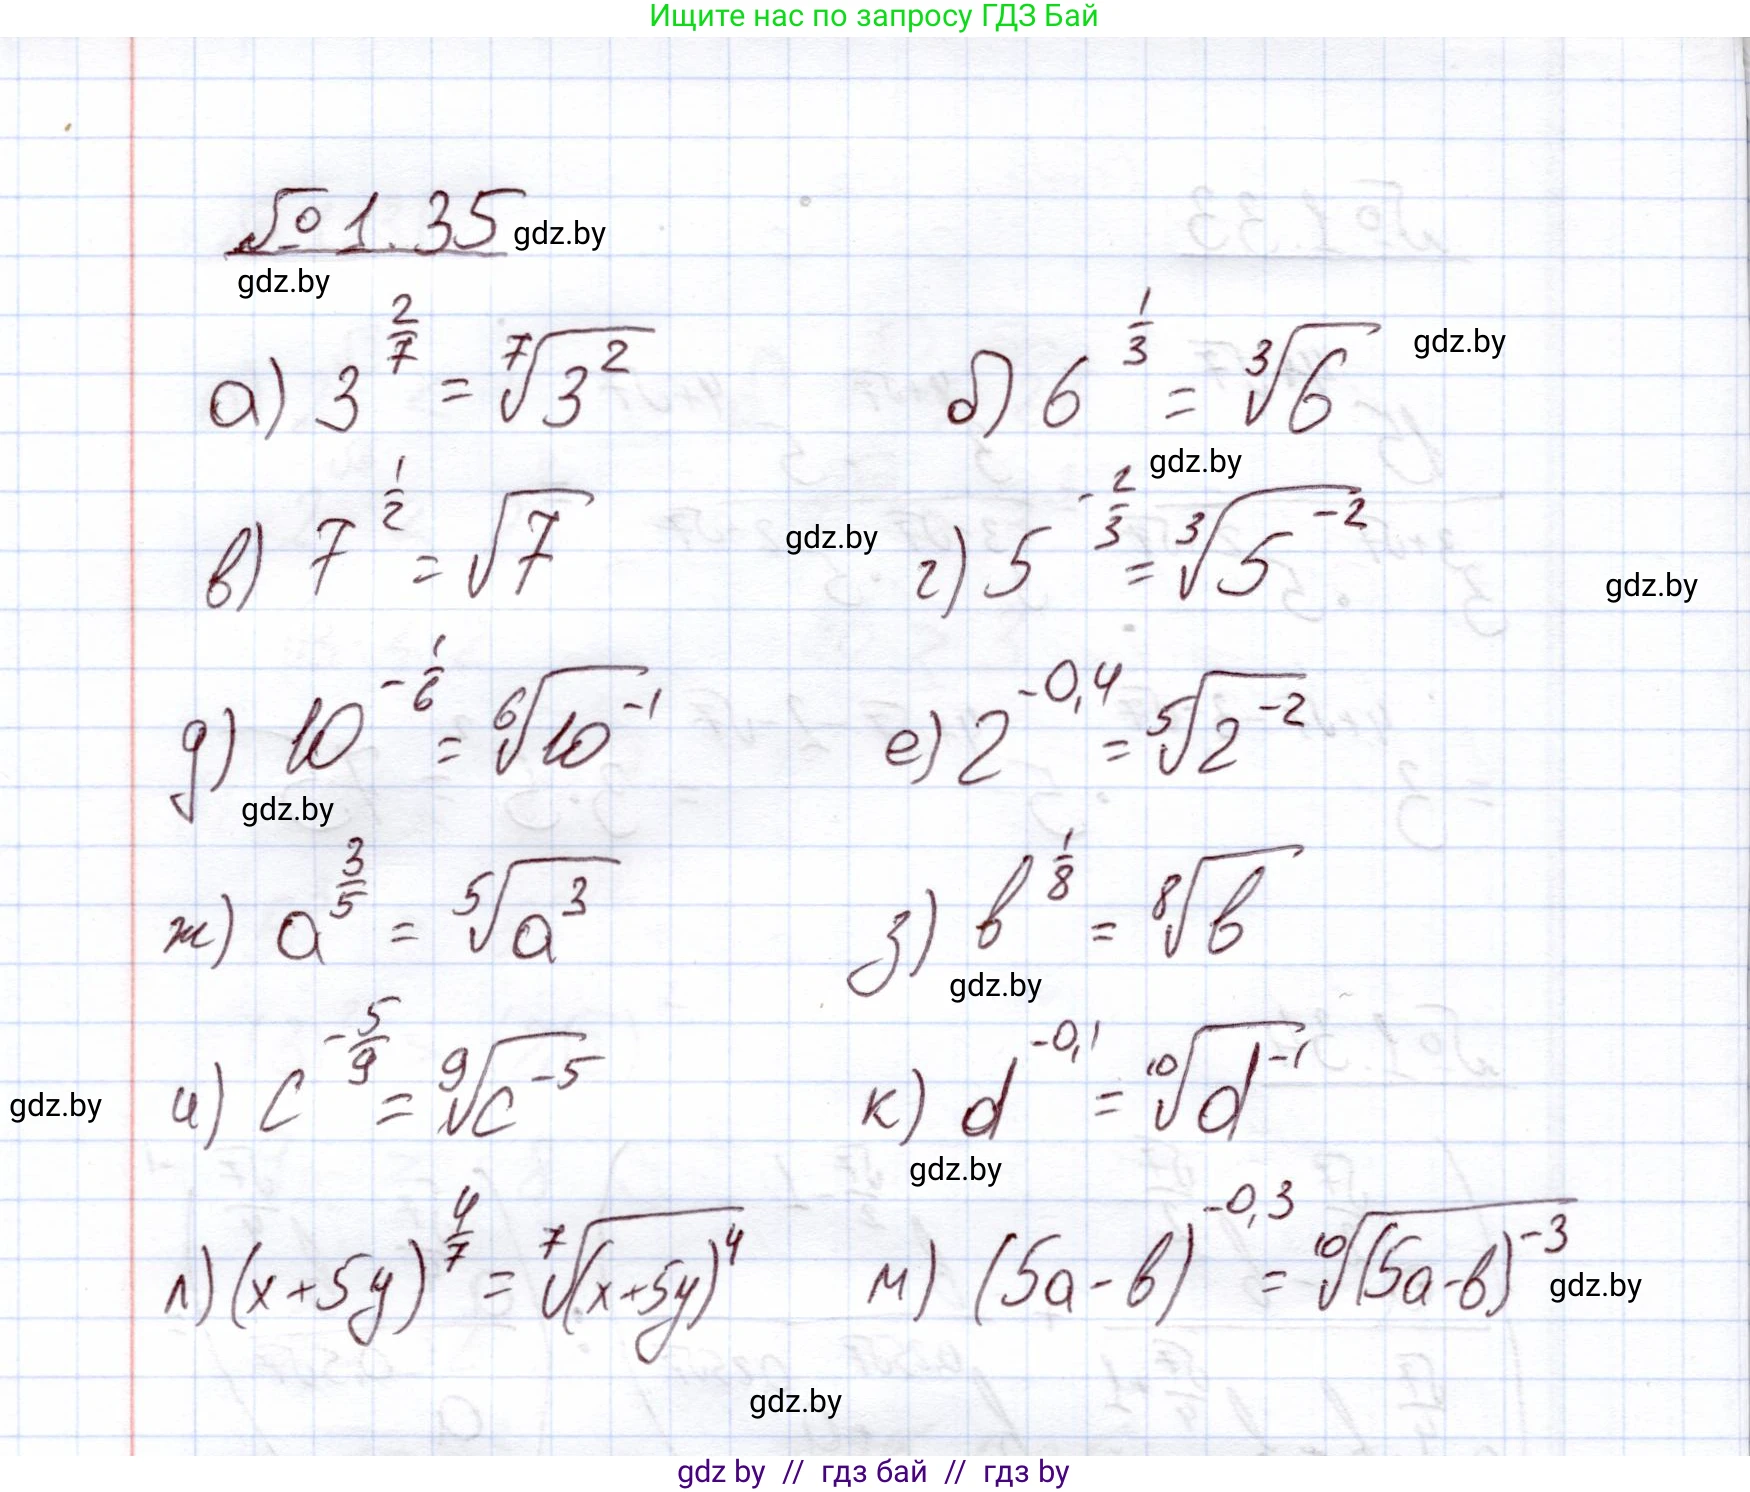 Ищите нас по запросу ГДЗ Бай
№1.35 gdz.by
gdz.by
а) 3^{2/7} = ⁷√(3²) б) 6^{1/3} = ³√6 gdz.by
gdz.by
в) 7^{1/2} = √7 gdz.by г) 5^{-2/3} = ³√(5^{-2}) gdz.by
д) 10^{-1/6} = ⁶√(10^{-1}) е) 2^{-0,4} = ⁵√(2^{-2})
gdz.by
ж) a^{3/5} = ⁵√(a³) з) b^{1/8} = ⁸√b
gdz.by
gdz.by и) c^{-5/9} = ⁹√(c^{-5}) к) d^{-0,1} = ¹⁰√(d^{-1})
gdz.by
л) (x+5y)^{4/7} = ⁷√((x+5y)⁴) м) (5a-b)^{-0,3} = ¹⁰√((5a-b)^{-3}) gdz.by
gdz.by
gdz by // гдз бай // гдз by